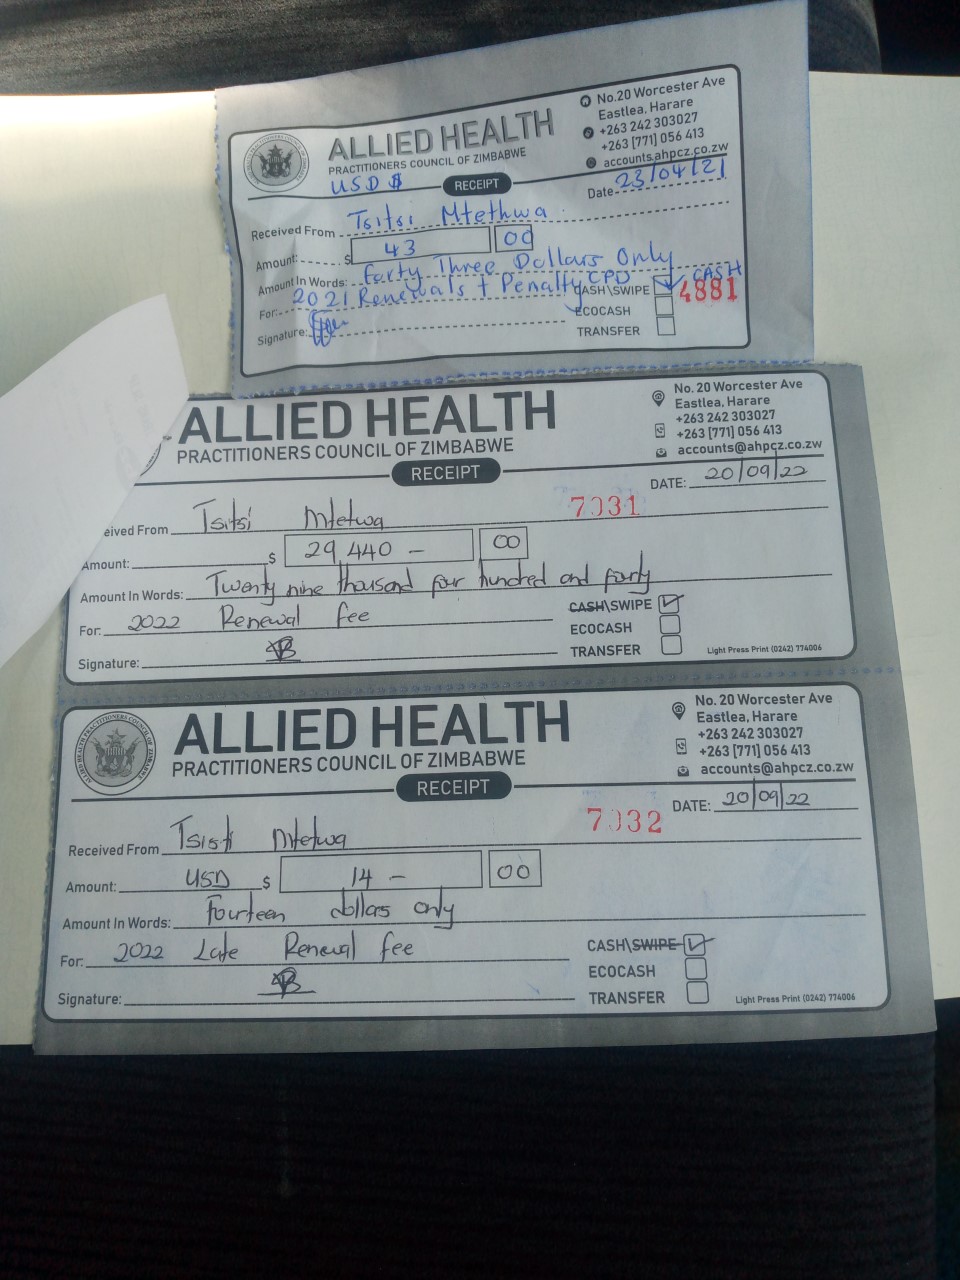 ALLIED HEALTH
PRACTITIONERS COUNCIL OF ZIMBABWE
No.20 Worcester Ave
Eastlea, Harare
+263 242 303027
+263 [771] 056 413
accounts.ahpcz.co.zw
USD $
RECEIPT
Date 23/04/21
Received From Tsitsi Mtethwa
Amount: $ 43 00
Amount In Words: Forty Three Dollars Only
For: 2021 Renewals + Penalty CPD
CASH\SWIPE CASH
4881
ECOCASH
Signature:
TRANSFER
ALLIED HEALTH
PRACTITIONERS COUNCIL OF ZIMBABWE
No. 20 Worcester Ave
Eastlea, Harare
+263 242 303027
+263 [771] 056 413
accounts@ahpcz.co.zw
RECEIPT
DATE: 20/09/22
7031
eived From Tsitsi Mtetwa
Amount: $ 29 440 - 00
Amount In Words: Twenty nine thousand four hundred and forty
For: 2022 Renewal fee
CASH\SWIPE
ECOCASH
Signature:
TRANSFER
Light Press Print (0242) 774006
ALLIED HEALTH PRACTITIONERS COUNCIL OF ZIMBABWE
ALLIED HEALTH
PRACTITIONERS COUNCIL OF ZIMBABWE
No. 20 Worcester Ave
Eastlea, Harare
+263 242 303027
+263 [771] 056 413
accounts@ahpcz.co.zw
RECEIPT
DATE: 20/09/22
7032
Received From Tsisti Mtetwa
Amount: USD $ 14 - 00
Amount In Words: Fourteen dollars only
For: 2022 Late Renewal fee
CASH\SWIPE
ECOCASH
Signature:
TRANSFER
Light Press Print (0242) 774006